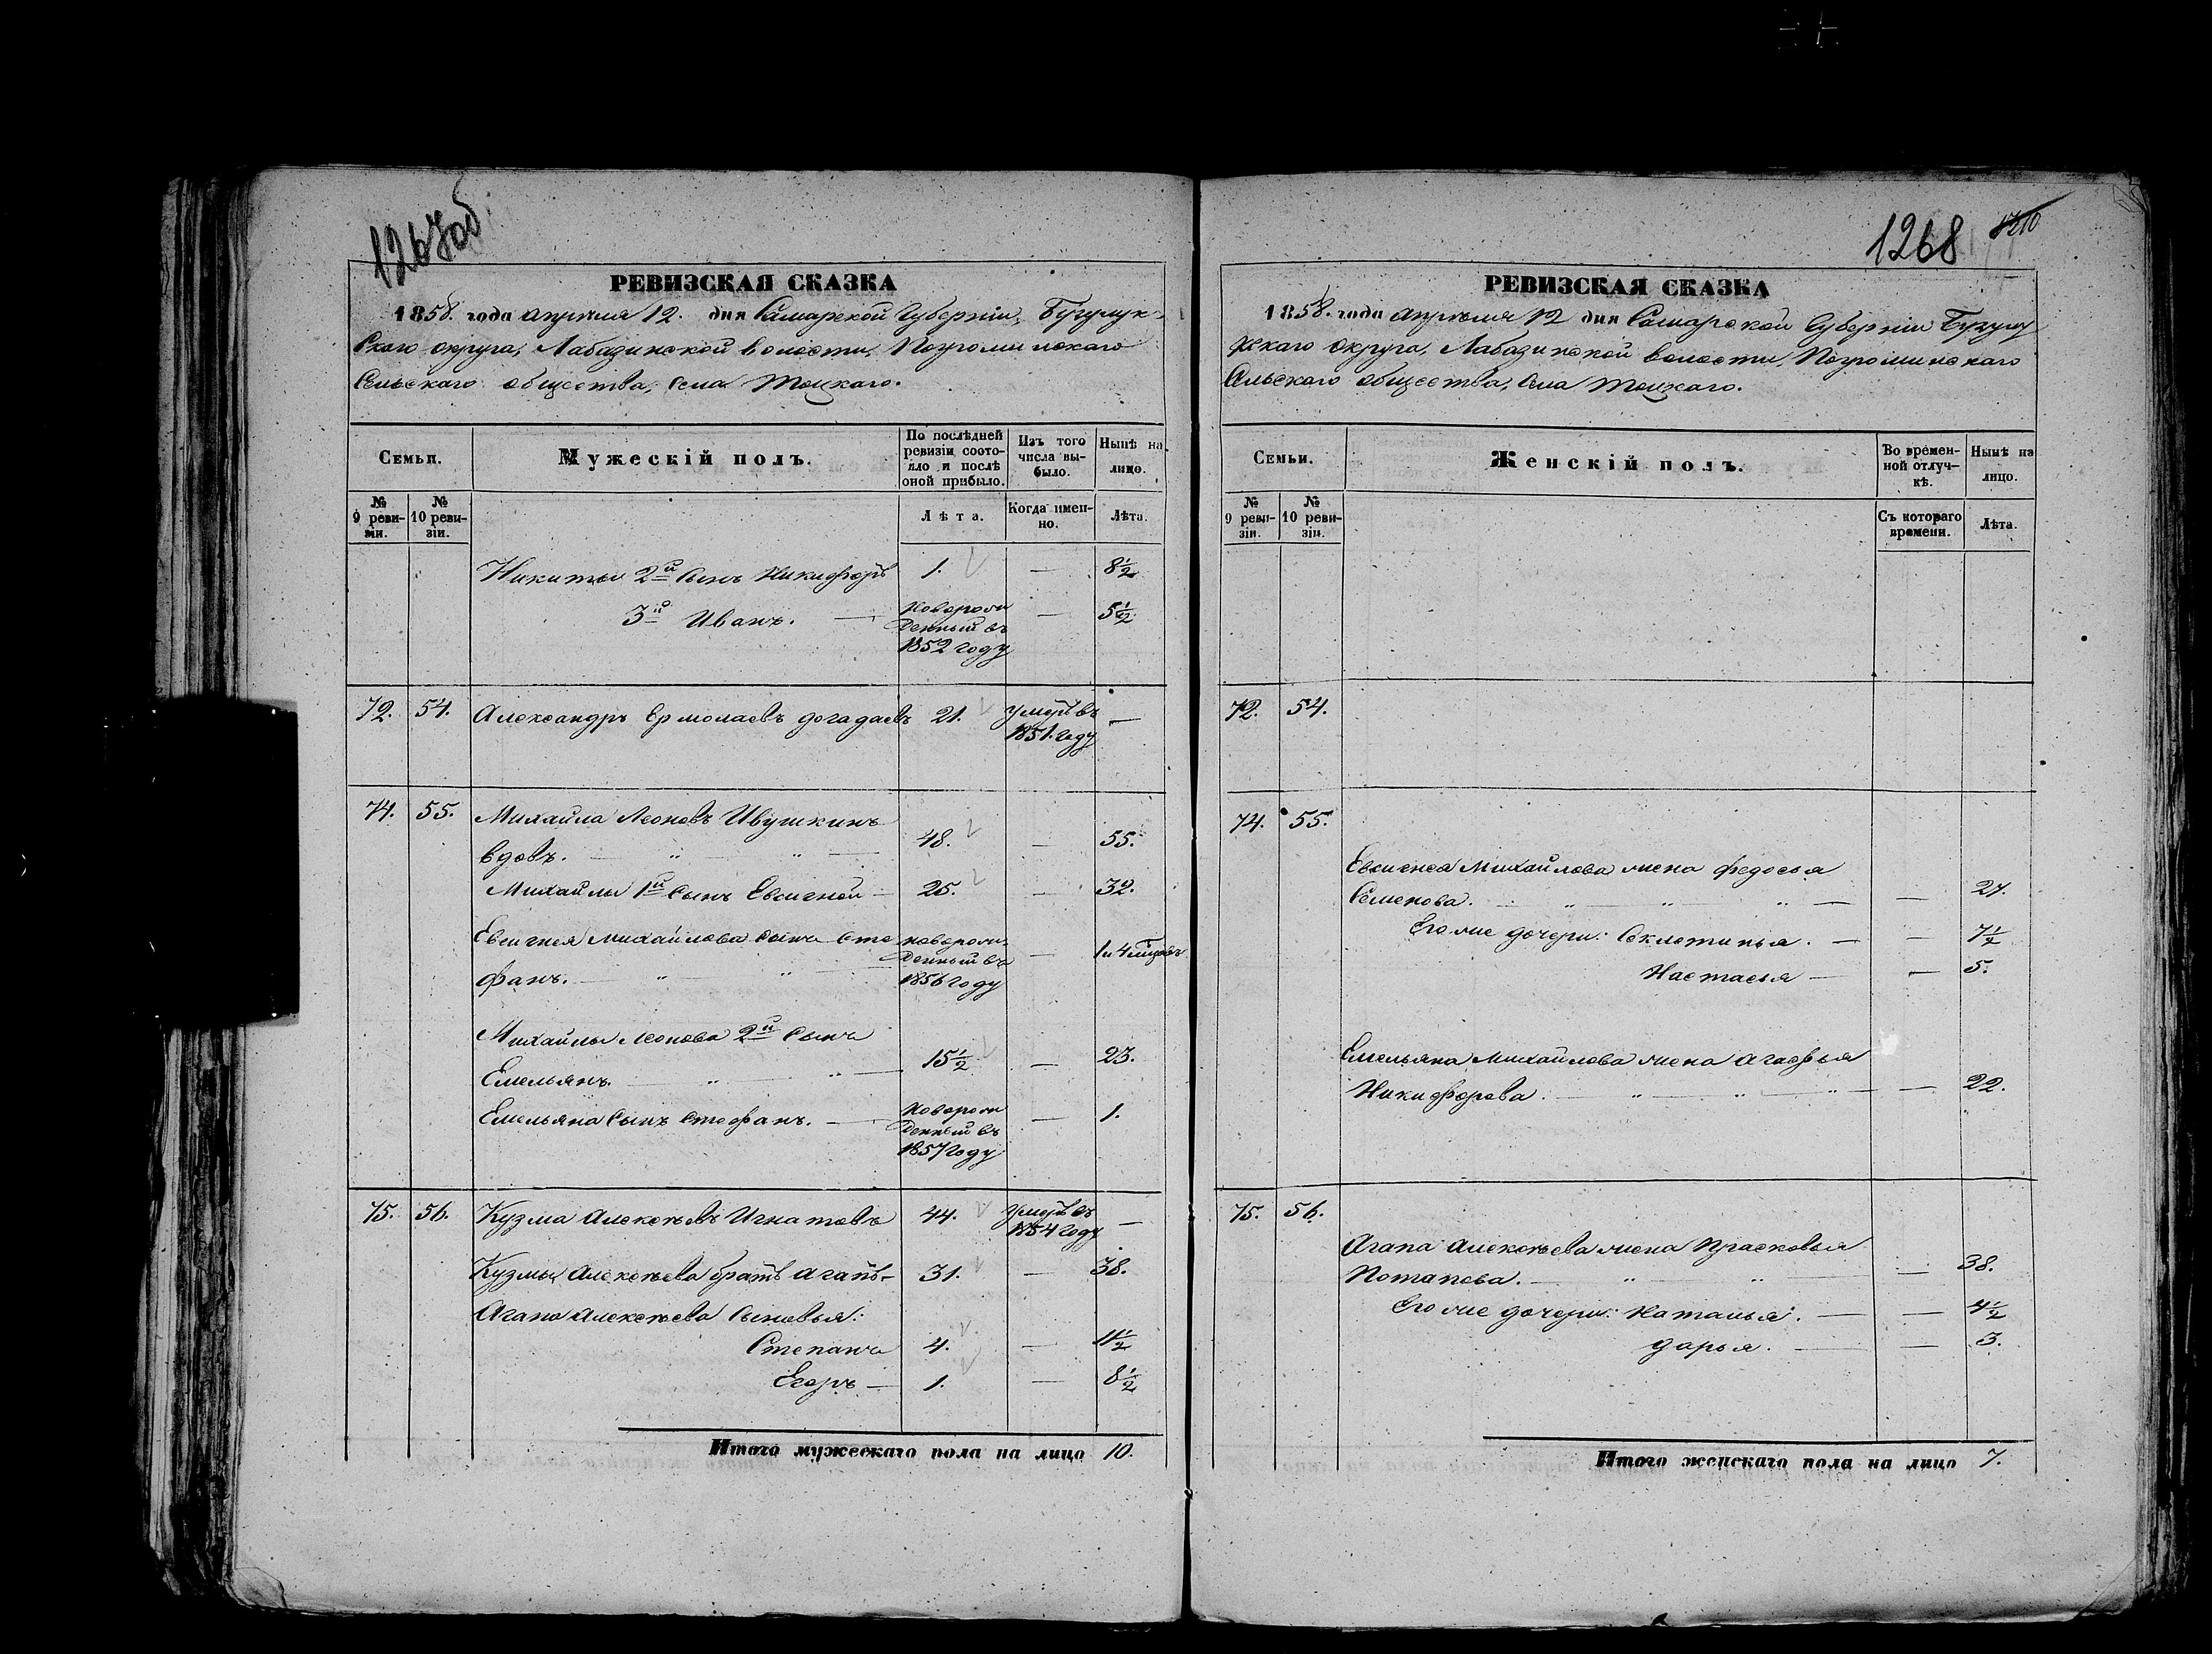 1267об.
РЕВИЗСКАЯ СКАЗКА
1858. года апреля 12. дня Самарской Губерніи, Бугулук-
скаго округа, Лабазинской волости, Погроминскаго
Сельскаго общества, Села Тоцкаго.
Семьи.
Мужескій полъ.
По послѣдней ревизіи состояло и послѣ оной прибыло.
Изъ того числа выбыло.
Нынѣ на лицо.
№ 9 ревизіи.
№ 10 ревизіи.
Лѣта.
Когда именно.
Лѣта.
Никиты 2й сынъ Никифоръ 1. — 8½
3й Иванъ. — Новорожденный въ 1852 году — 5½
72. 54. Александръ Ермолаевъ Догадаевъ 21. умеръ въ 1851. году —
74. 55. Михайла Леоновъ Ивушкинъ
вдовъ. — " — " — 48. — 55.
Михайлы 1й сынъ Евсигней — 25. — 32.
Евсигнея Михайлова сынъ Сте
фанъ. — " — " — новорожденный въ 1856 году — 1 и 4 мѣся
Михайлы Леонова 2й сынъ
Емельянъ. — " — " — 15½ — 23.
Емельяна сынъ Стефанъ. — Новорожденный въ 1857 году — 1.
75. 56. Кузма Алексѣевъ Игнатовъ 44. умеръ въ 1854 году —
Кузмы Алексѣева братъ Агапъ — 31. — 38.
Агапа Алексѣева сыновья:
Степанъ 4. — 11½
Егоръ — 1. — 8½
Итого мужескаго пола на лицо 10.
1268 1210
РЕВИЗСКАЯ СКАЗКА
1858. года апрѣля 12 дня Самарской Губерніи Бугулу
скаго округа, Лабазинской волости, Погроминскаго
Сельскаго общества, Села Тоцкаго.
Семьи.
Женскій полъ.
Во временной отлучкѣ.
Нынѣ на лицо.
№ 9 ревизіи.
№ 10 ревизіи.
Съ котораго времени.
Лѣта.
72. 54.
74. 55.
Евсигнея Михайлова жена Федосья
Семенова. — " — " — " — — 27.
Его же дочери: Секлетинья. — — 7½
Настасья — — 5.
Емельяна Михайлова жена Агафья
Никифорова. — " — " — " — — 22.
75. 56.
Агапа Алексѣева жена Прасковья
Потапова. — " — " — — 38.
Его же дочери: Наталья. — — 4½
Дарья. — — 3.
Итого женскаго пола на лицо 7.